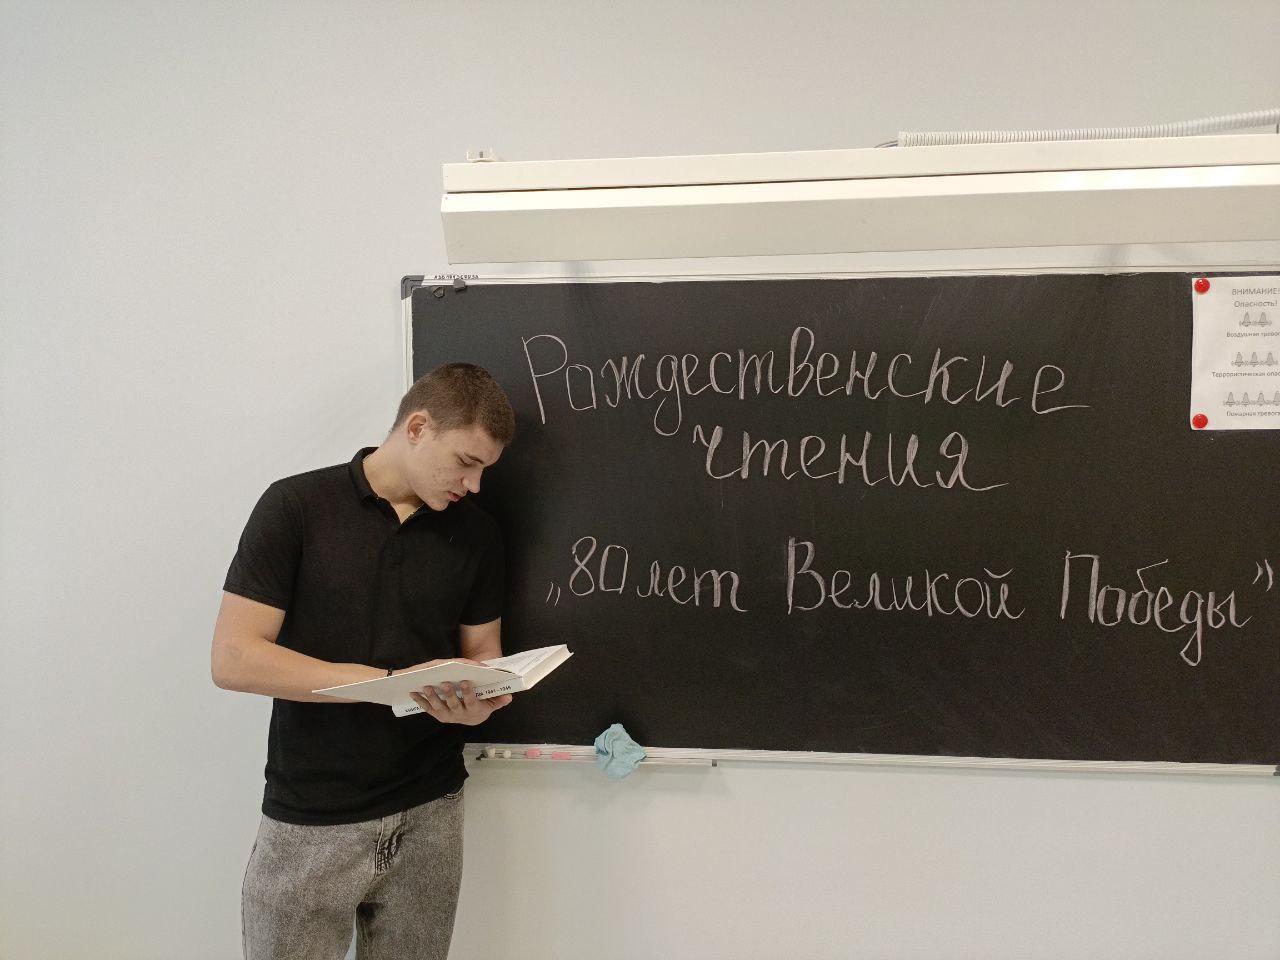 Рождественские
чтения
„80 лет Великой Победы”
ВНИМАНИЕ!
Опасность!
Воздушная
Террористическая
Пожарная тревога
1941-1945